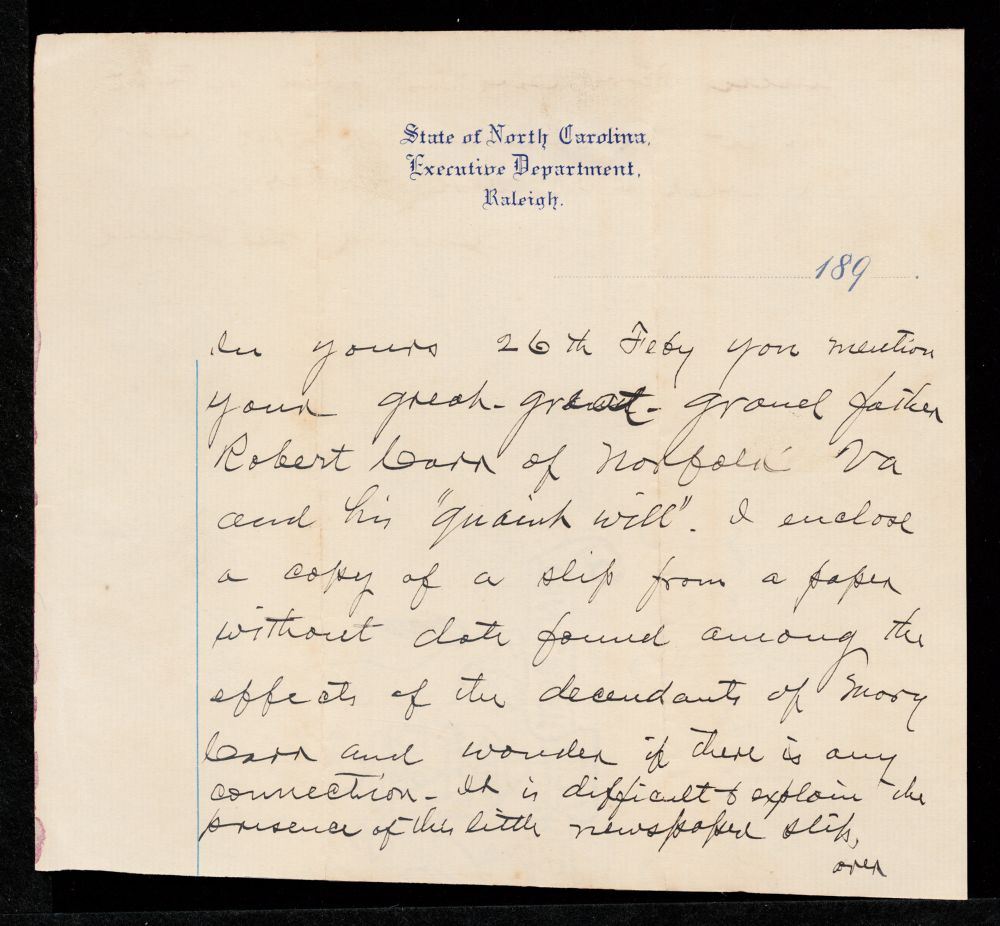 State of North Carolina,
Executive Department,
Raleigh.
189 .
In yours 26th Feby you mention
your great-great-grand father
Robert Carr of Norfolk Va
and his "quaint will". I enclose
a copy of a slip from a paper
without date found among the
effects of the decendants of Mary
Carr and wonder if there is any
connection - It is difficult to explain the
presence of this little newspaper slip,
over